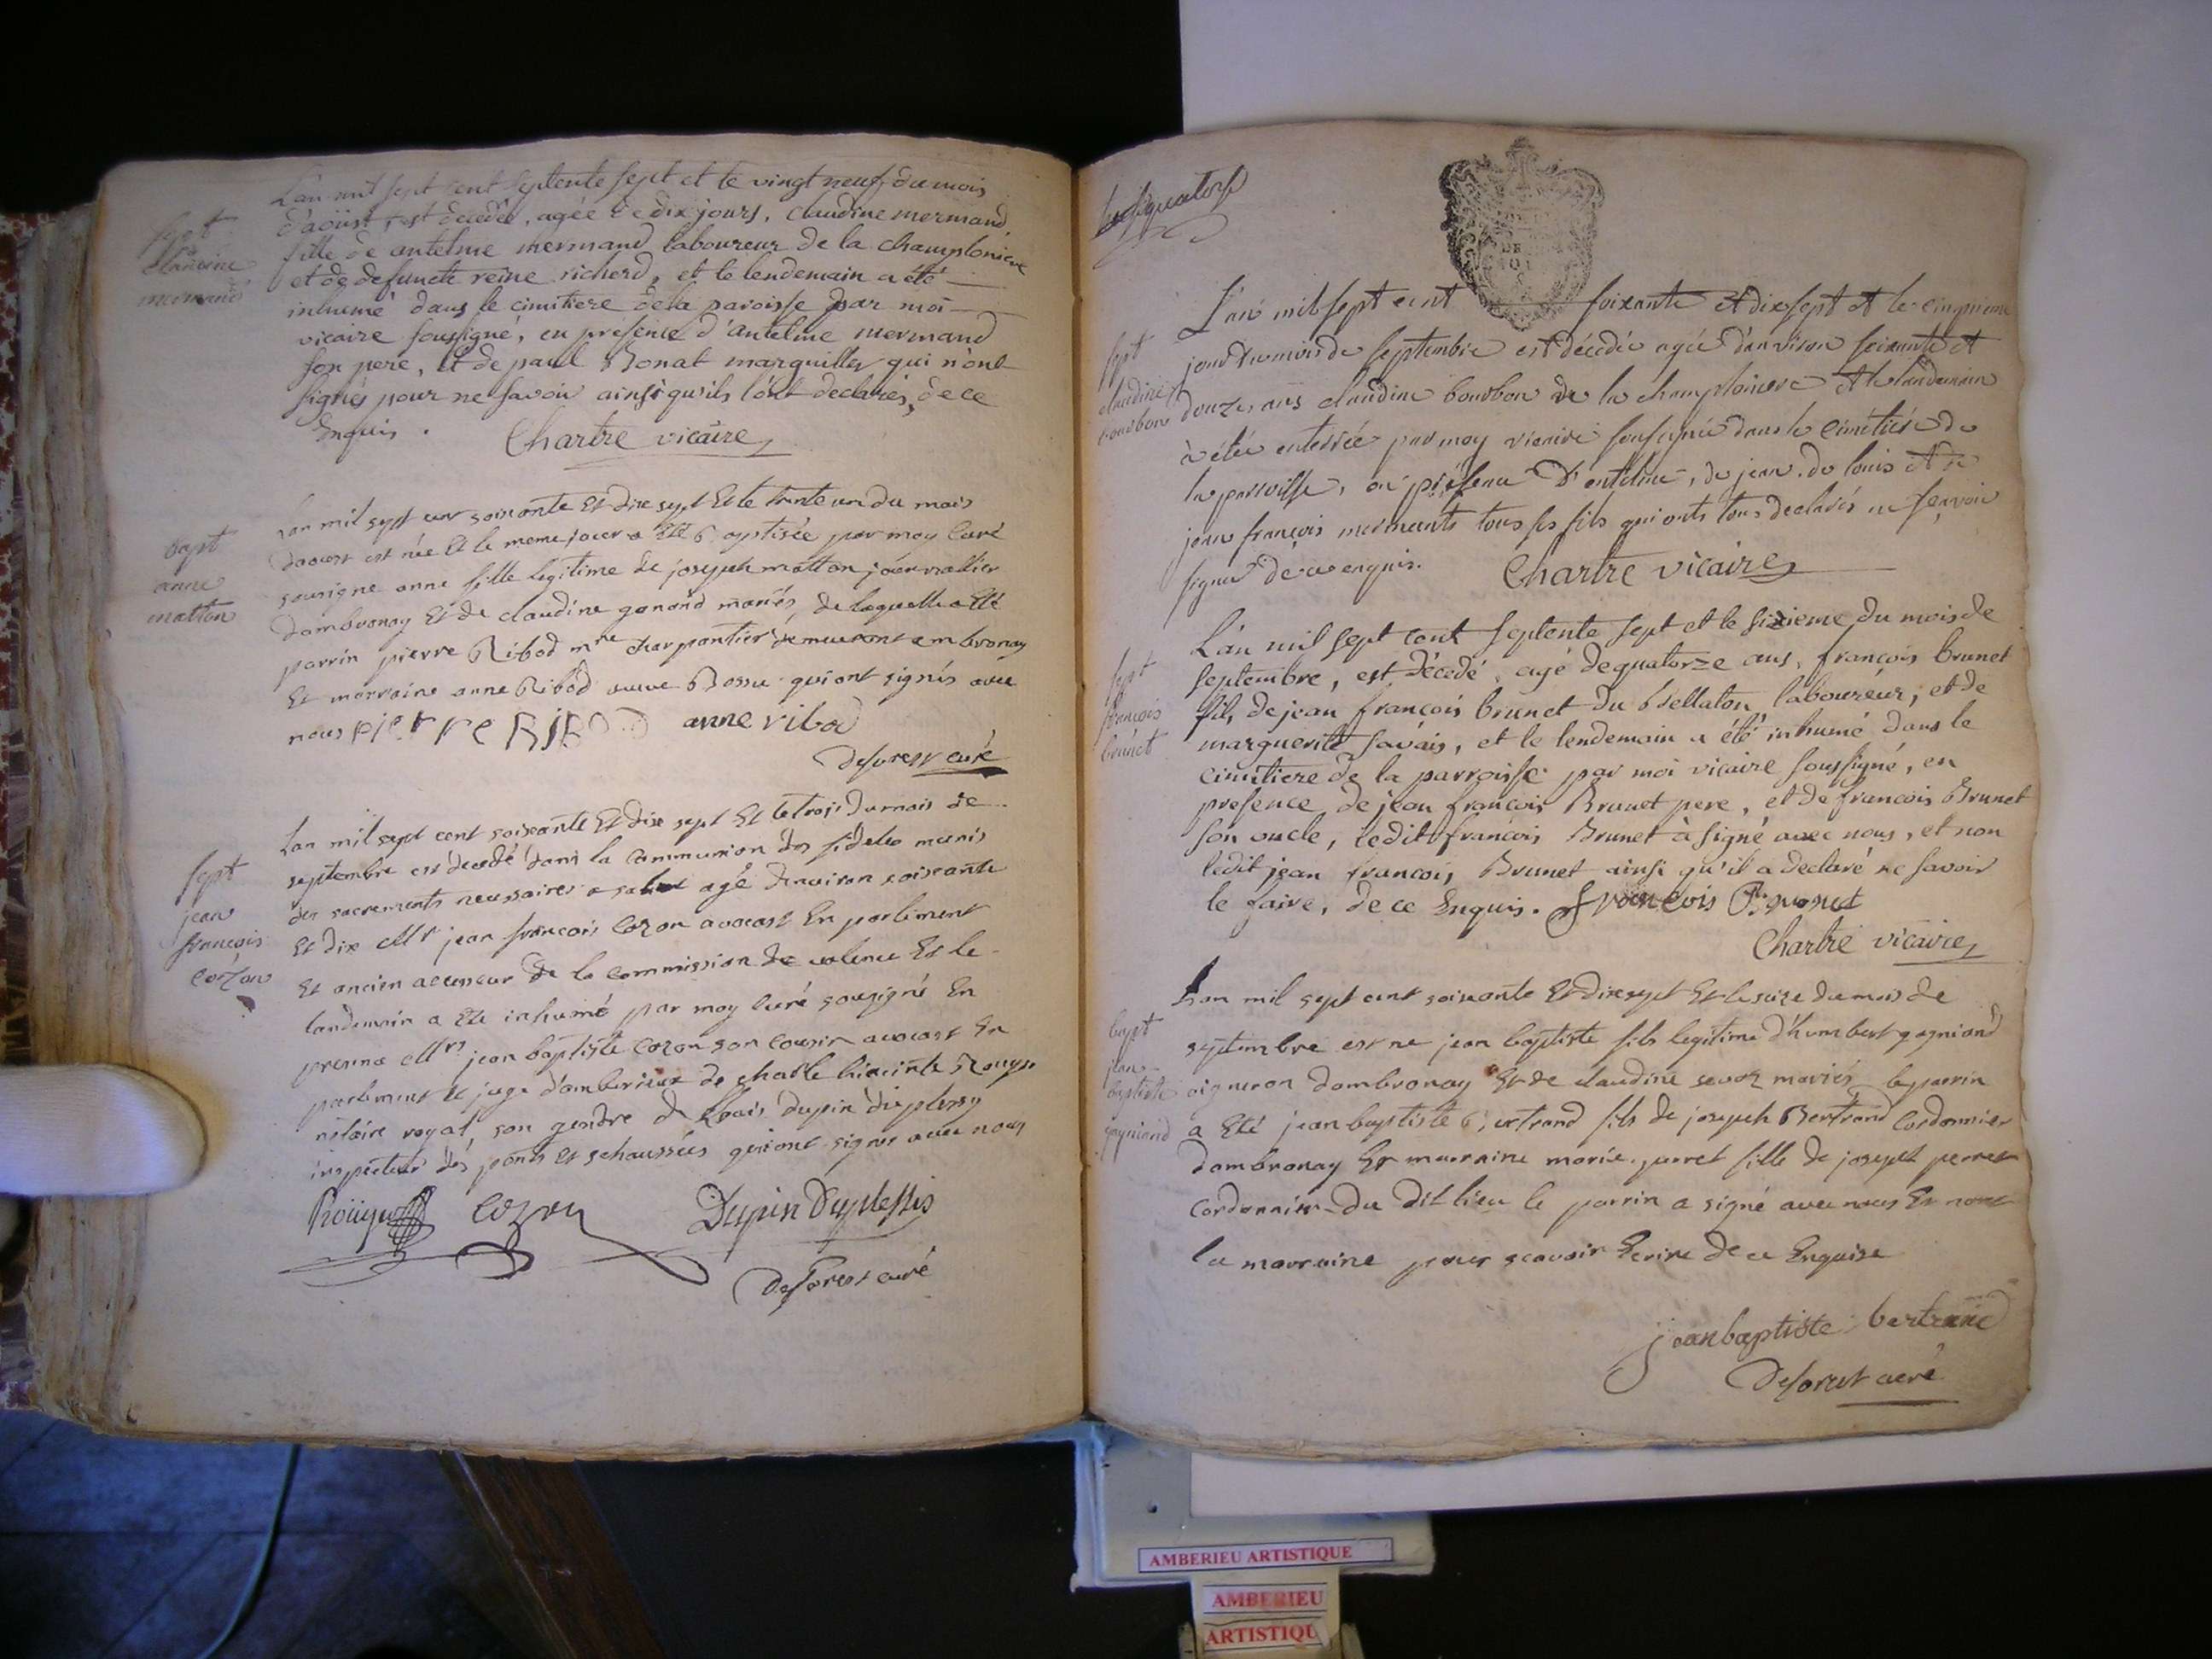 L'an mil sept cent septente sept et le vingt neuf du mois
d'aoüst est decedée, agée de dix jours, claudine mermand,
fille de antelme mermand laboureur de la champloniere
et de defuncte reine richerd, et le lendemain a été
inhumé dans le cimitiere de la paroisse par moi
vicaire soussigné, en présence d'antelme mermand
son pere, et de paul Bonat marguiller qui n'ont
signés pour ne savoir ainsi qu'ils l'ont declarés, de ce
Enquis. Chartre vicaire
sept
claudine
mermand
Lan mil sept cent soixante Et dix sept Et le trente un du mois
daoust est née Et le meme jour a Eté baptisée par moy Curé
sousigne anne fille legitime de joseph matton journallier
dambronay Et de claudine gonand mariés, de laquelle a Eté
parrin pierre Ribod mre charpantier demeurant ambronay
Et marraine anne Ribod veuve Bossu qui ont signés avec
nous pierre RIBOD anne ribod
deforest curé
bapt
anne
matton
Lan mil sept cent soixante Et dix sept Et le trois du mois de
septembre est decedé dans la Communion des fideles munis
des sacrements necessaires a salut agé denviron soixante
Et dix Mr jean françois Cozon avocast En parliment
Et ancien accesseur de la Commission de valence Et le
landemain a Eté inhumé par moy Curé sousigné En
presence Mrs jean baptiste Cozon son Cousin avocast En
parliment Et juge d'amberieux de charle hiacinte Rouyer
notaire royal, son gendre de Louis dupin duplessy
inspecteur des ponts Et schaussées qui ont signés avec nous
Roüyer Cozon Dupin Duplessis
deforest curé
sept
jean
françois
cozon
L'an mil sept cent soixante et dix sept et le cinquieme
jour du mois de septembre est décedée agée d'anviron soixante et
douze ans claudine bourbon de la champloniere et le landemain
à étée enterrée par moy vicaire sousigné dans le cimétiére de
la parroisse, en présence d'antelme, de jean, de louis et de
jean françois mermants tous ses fils qui onts tous declarés ne sçavoir
signer de ce enquis. Chartre vicaire
sept
claudine
bourbon
L'an mil sept cent septente sept et le sixieme du mois de
septembre, est décedé, agé de quatorze ans, françois brunet
fils de jean françois brunet du Bellaton laboureur, et de
marguerite savais, et le lendemain a été inhumé dans le
cimitiere de la parroisse par moi vicaire soussigné, en
presence de jean françois Brunet pere, et de francois Brunet
son oncle, ledit françois Brunet à signé avec nous, et non
ledit jean francois Brunet ainsi qu'il a declaré ne savoir
le faire, de ce Enquis. francois Brunet
Chartre vicaire
sept
françois
brunet
Lan mil sept cent soixante Et dix sept Et le seize du mois de
septembre est ne jean baptiste fils legitime d'humbert gagniand
vigneron dambronay Et de claudine sevoz mariés le parrin
a Eté jean baptiste bertrand fils de joseph Bertrand Cordonnier
dambronay Et marraine marie perret fille de joseph perret
Cordonnier du dit lieu le parrin a signé avec nous Et non
la marraine pour scavoir Ecrire de ce Enquise
jean baptiste bertrand
deforest curé
bapt
jean
baptiste
gagniand
AMBERIEU ARTISTIQUE
AMBERIEU
ARTISTIQU